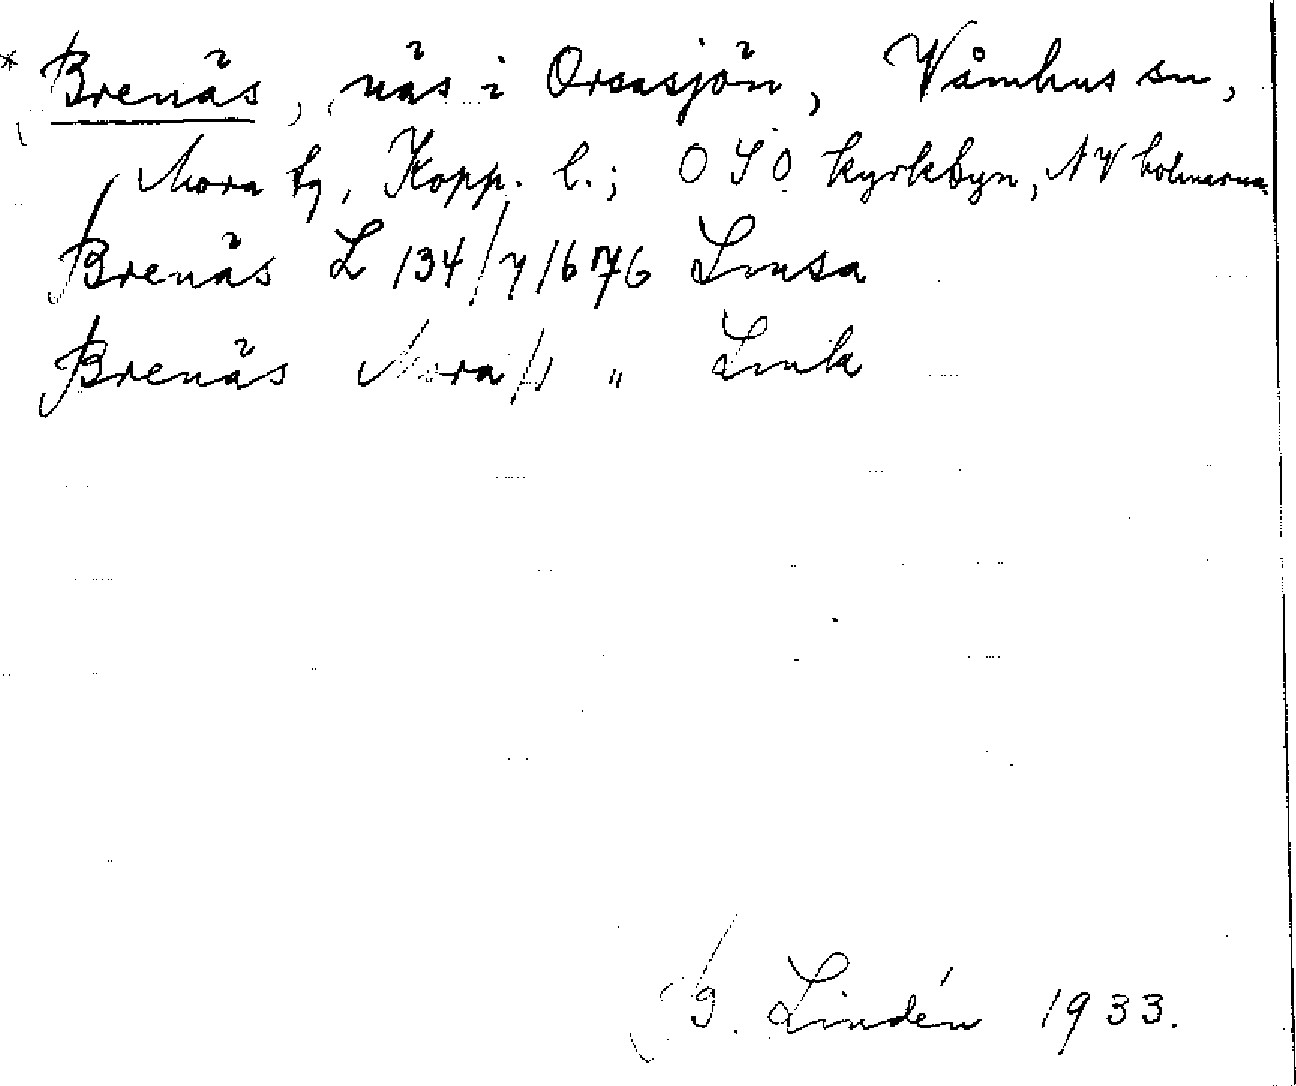 * Brenäs, näs i Orsasjön, Våmhus sn,
Mora tg, Kopp. l.; OSO kyrkbyn, NV holmarna.
Brenäs L 134/7 1676 Lmsa
Brenäs Mora " Lmk
B. Lindén 1933.